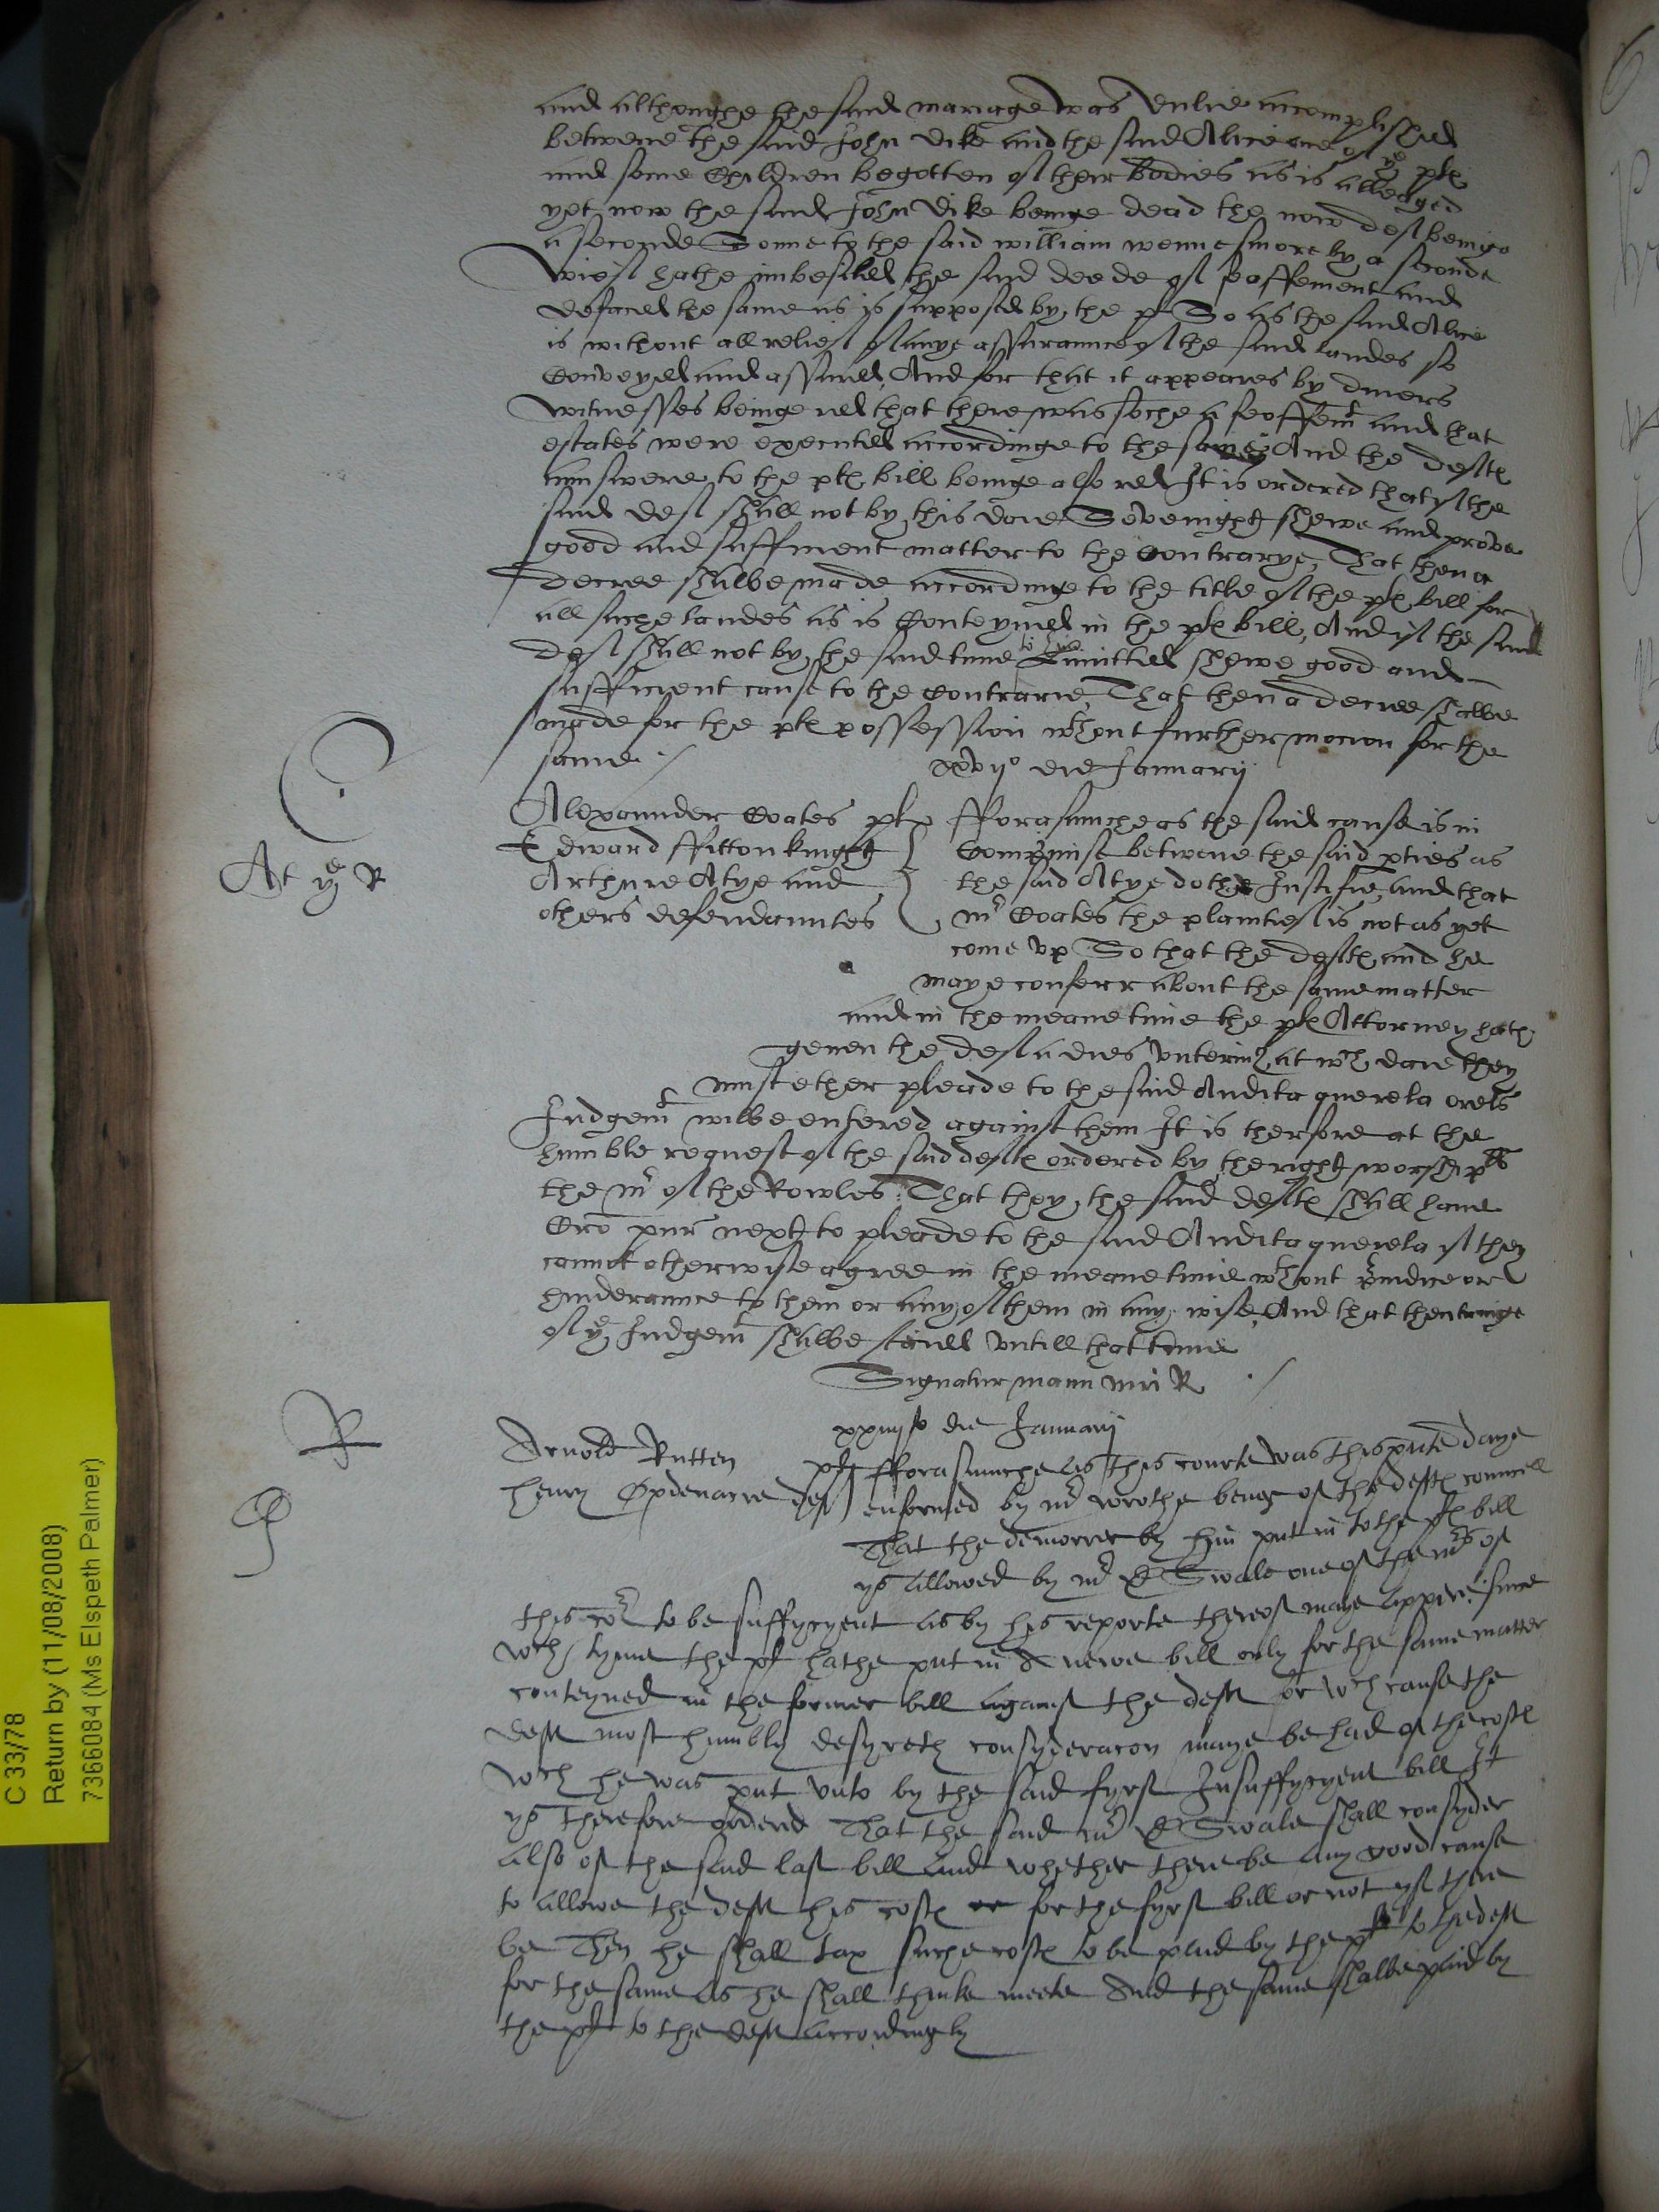 and althoughe the said mariage was dulie accomplished
betwene the said John Dike and the said Alice one of ye plt
and some Children begotten of their Bodies as is alledged
yet now the said John Dike beinge dead the now deft beinge
a seconde Sonne to the said william wennesmore by a seconde
wief hathe imbesiled the said deede of feoffement and
defaced the same as is supposed by the pl So as the said Alice
is without all relief of anye assuraunce of the said landes so
Conveyed and assured, And for that it appeares by divers
witnesses beinge red that there was soche a feoffemt and that
estates were executed accordinge to the same And the deftes
aunswere to the pltes bill beinge also red It is ordered that yf the
said deft shall not by this daie Sevenight shewe and prove
good and sufficient matter to the Contrarye, That then a
decree shalbe made accordinge to the title of the pltes bill for
all suche landes as is Conteyned in the pltes bill, And if the said
deft shall not by the said time to him limitted shewe good and
sufficient cause to the Contrarie, That then a decree shalbe
made for the pltes possession wthout further mocion for the
same
xxvijo die Januarij
C
At ye R
Alexaunder Coates plt
Edward ffitton knight
Arthure Atye and
others defendauntes
fforasmuche as the said cause is in
Compromise betwene the said pties as
the said Atye dothe Justifie, and that
mr Coates the plaintief is not as yet
come vp So that the deftes and he
maye conferr about the same matter
and in the meane time the pltes Attorney hath
geven the deft a dies vnterius, at wch daie they
must ether pleade to the said Audita querela orels
Judgemt wilbe entered against them It is therfore at the
humble request of the said deftes ordered by the right worshipfll
the mr of the Rowles That they the said deftes shall have
Cro pur next to pleade to the said Audita querela yf they
cannot otherwise agree in the meane time wthout preiudice or
hinderaunce to them or any of them in any wise, And that thentringe
of ye Judgemt shalbe staied vntill that time
Signatur manu mri R
xxiiijto die Januarij
R
Arnold Rutten plt
henry Oxdenarre deft
fforasmuche as this courte was this pnte daye
enformed by mr wrothe beinge of the deftes councell
That the demorrer by him put in to the pltes bill
ys allowed by mr D Swale one of the mrs of
this cort to be suffycyent as by his reporte thereof maye appere since
wch tyme the plt hathe put in A newe bill only for the same matter
conteyned in the former bill against the deft for wch cause the
deft most humbly desyreth consyderacon maye be had of the costes
wch he was put vnto by the said fyrst Insuffycyent bill It
ys therefore ordered That the said mr D Swale shall consyder
also of the said last bill and whether there be any good cause
to allowe the deft his costes for the fyrst bill or not yf there
be Then he shall tax suche costes to be paid by the plt to the deft
for the same as he shall thinke meete And the same shalbe paid by
the plt to the deft accordingly
C 33/78
Return by (11/08/2008)
7366084 (Ms Elspeth Palmer)